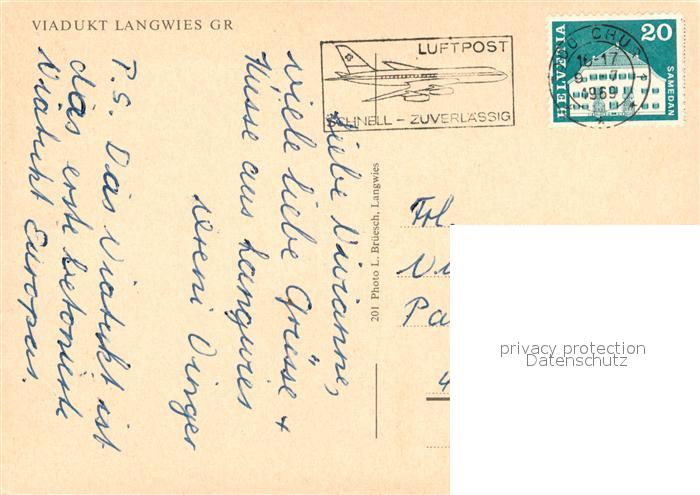 VIADUKT LANGWIES GR
LUFTPOST
SCHNELL - ZUVERLÄSSIG
CHUR
16-17
1969
HELVETIA
20
SAMEDAN
Liebe Vivianne,
viele liebe Grüsse +
Küsse aus Langwies
vereni Vinger
P.S. Das Viadukt ist
das erste betonierte
Viadukt Europas.
201 Photo L. Brüesch, Langwies
Frl.
Vi
Pa
4
privacy protection
Datenschutz